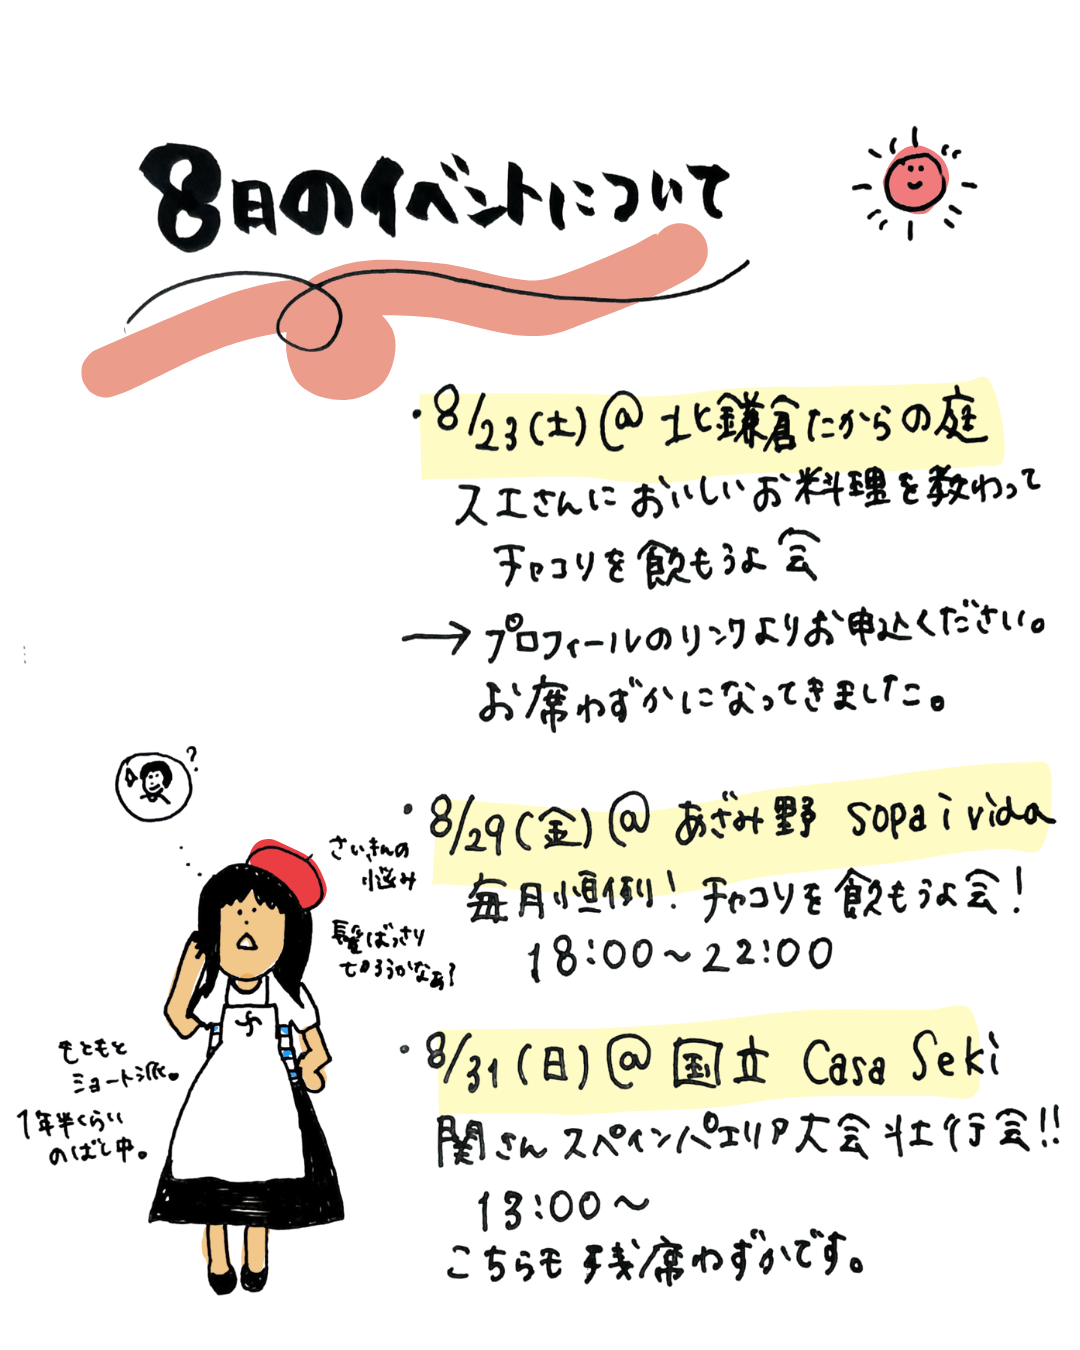 8月のイベントについて
・8/23(土)@北鎌倉たからの庭
スエさんにおいしいお料理を教わって
チャコリを飲もうよ会
→プロフィールのリンクよりお申込ください。
お席わずかになってきました。
・8/29(金)@あざみ野 sopa i vida
毎月恒例!チャコリを飲もうよ会!
18:00~22:00
・8/31(日)@国立 Casa Seki
関さんスペインパエリア大会壮行会!!
13:00~
こちらも残席わずかです。
?
さいきんの
悩み
髪ばっさり
切ろうかなぁ?
もともと
ショート派。
1年半くらい
のばし中。